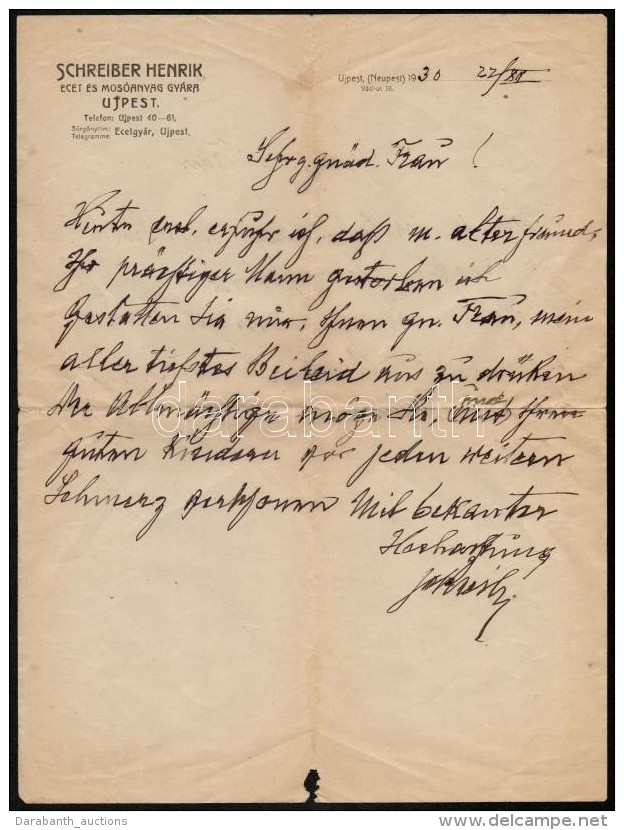 SCHREIBER HENRIK
ECET ÉS MOSÓANYAG GYÁRA
UJPEST.
Telefon: Ujpest 40—61.
Sürgönycím:
Telegramme: Ecetgyár, Ujpest.
Ujpest, (Neupest) 1930 22/XII
Váci-ut 16.
Sehr g. gnäd. Frau!
erfuhr ich, daß m. alter freund,
Ihr prächtiger Mann gestorben ist
Gestatten Sie mir, Ihnen gn. Frau, mein
aller tiefstes Beileid aus zu drüken
Der Allmächtige möge Sie, und Ihre
guten Kinder vor jeden weitern
Schmerz verschonen Mit bekanter
Hochachtung
darabanth
Darabanth_auctions
www.delcampe.net